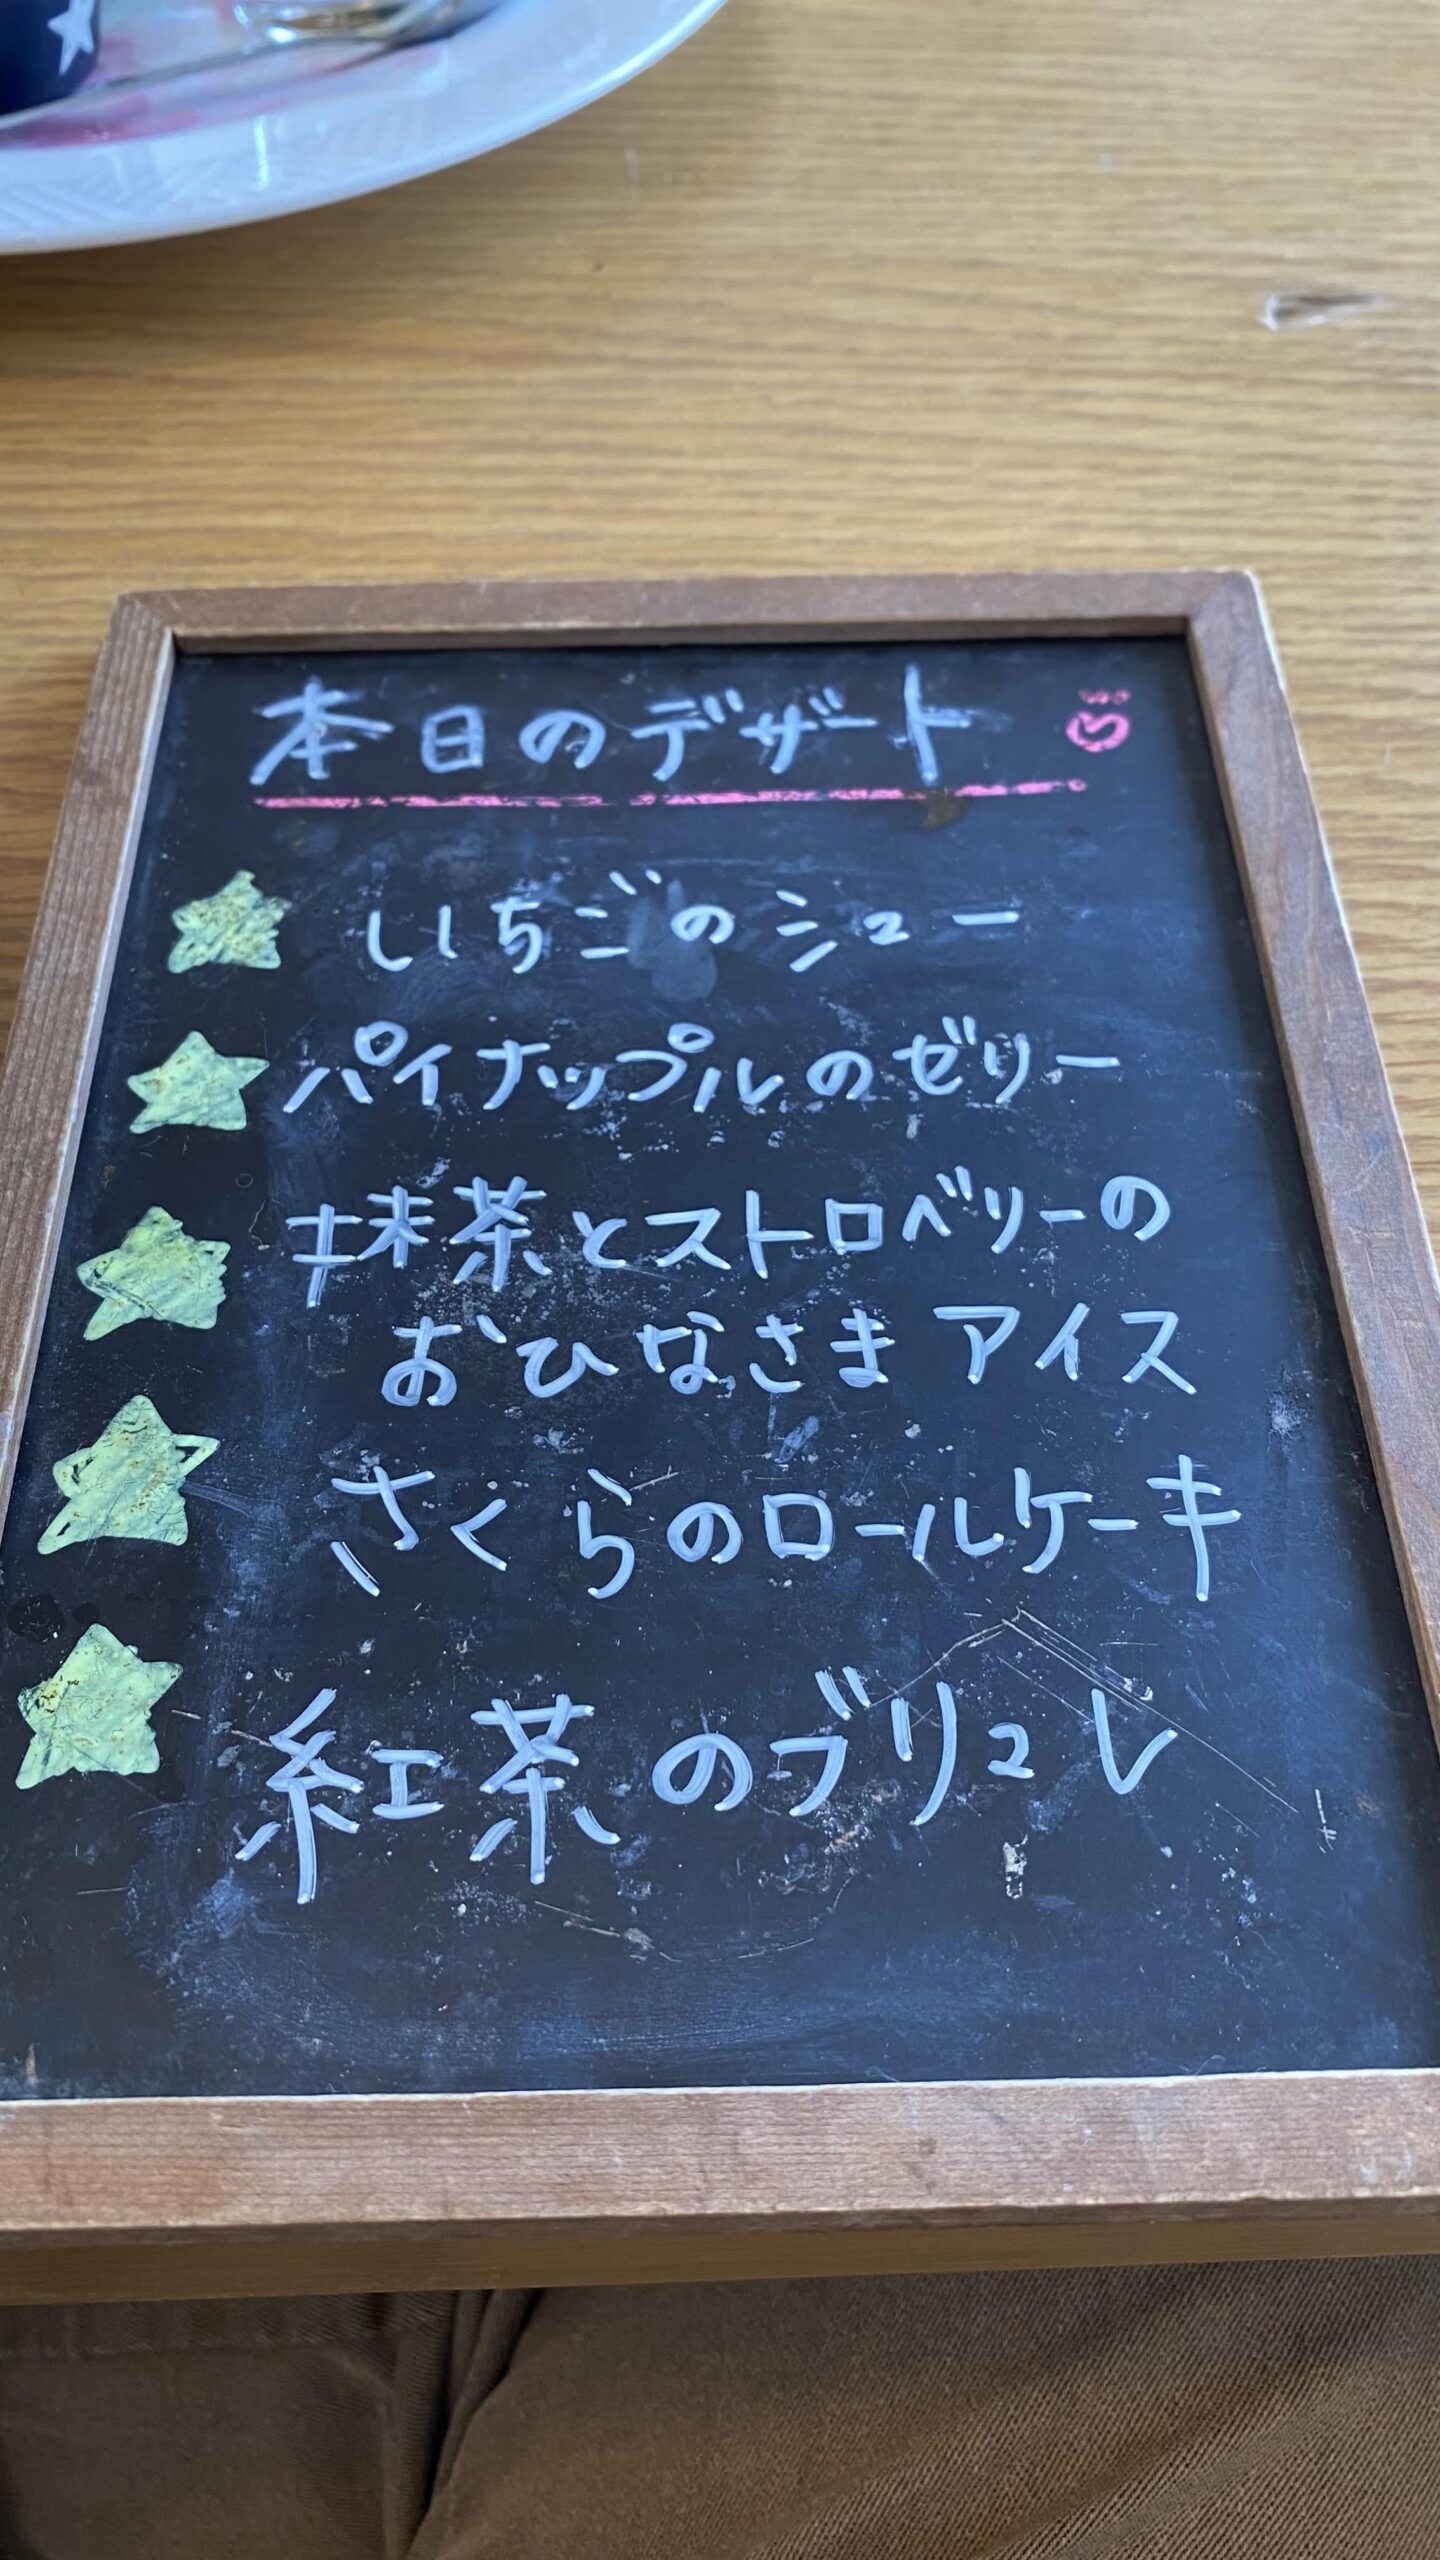 本日のデザート
いちごのシュー
パイナップルのゼリー
抹茶とストロベリーの
おひなさまアイス
さくらのロールケーキ
紅茶のブリュレ